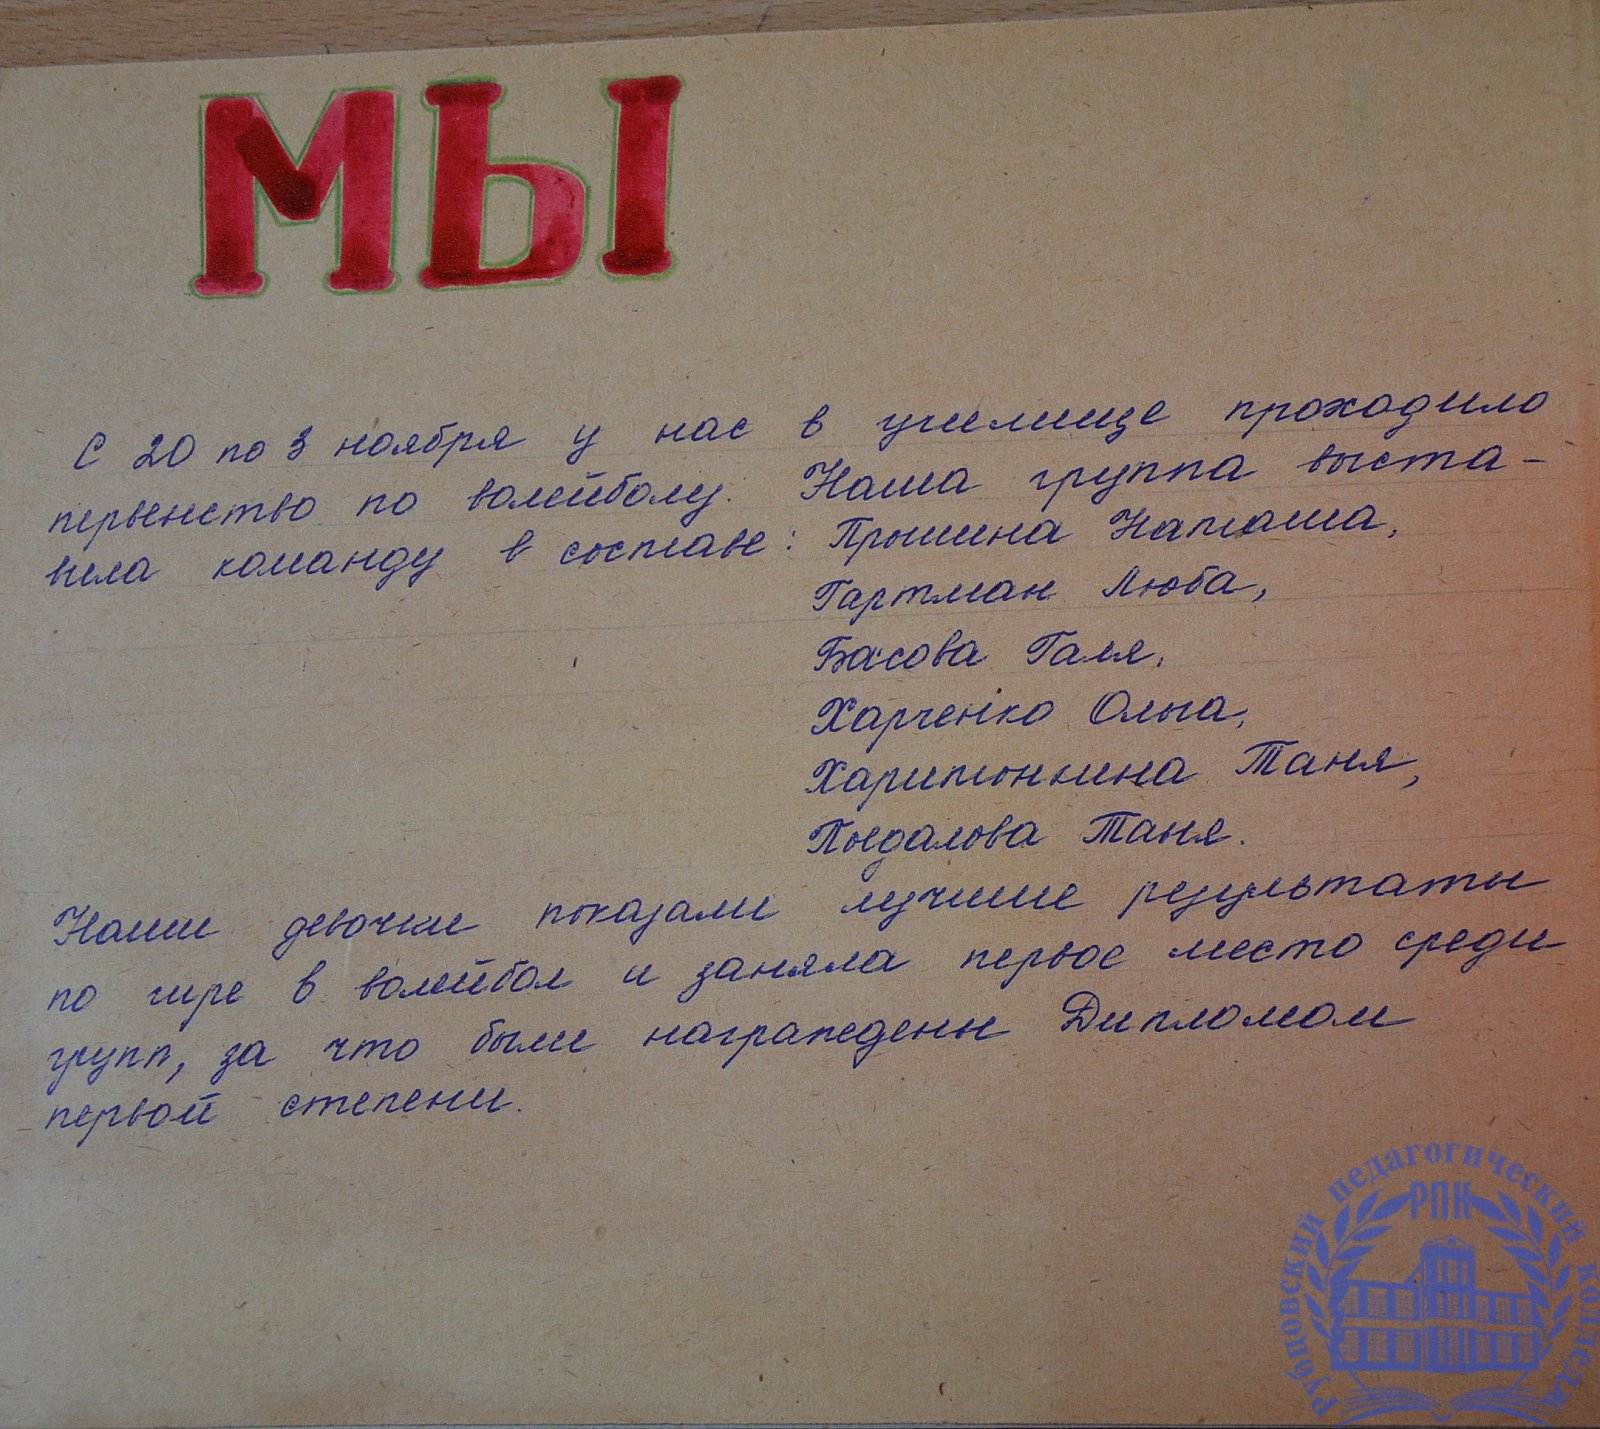 МЫ
С 20 по 3 ноября у нас в училище проходило
первенство по волейболу. Наша группа выста-
вила команду в составе: Прошина Наташа,
Гартман Люба,
Басова Галя,
Харченко Ольга,
Харитонкина Таня,
Таня.
Наши девочки показали лучшие результаты
по игре в волейбол и заняла первое место среди
групп, за что были награждены Дипломом
первой степени.
Рубцовский педагогический колледж
РПК